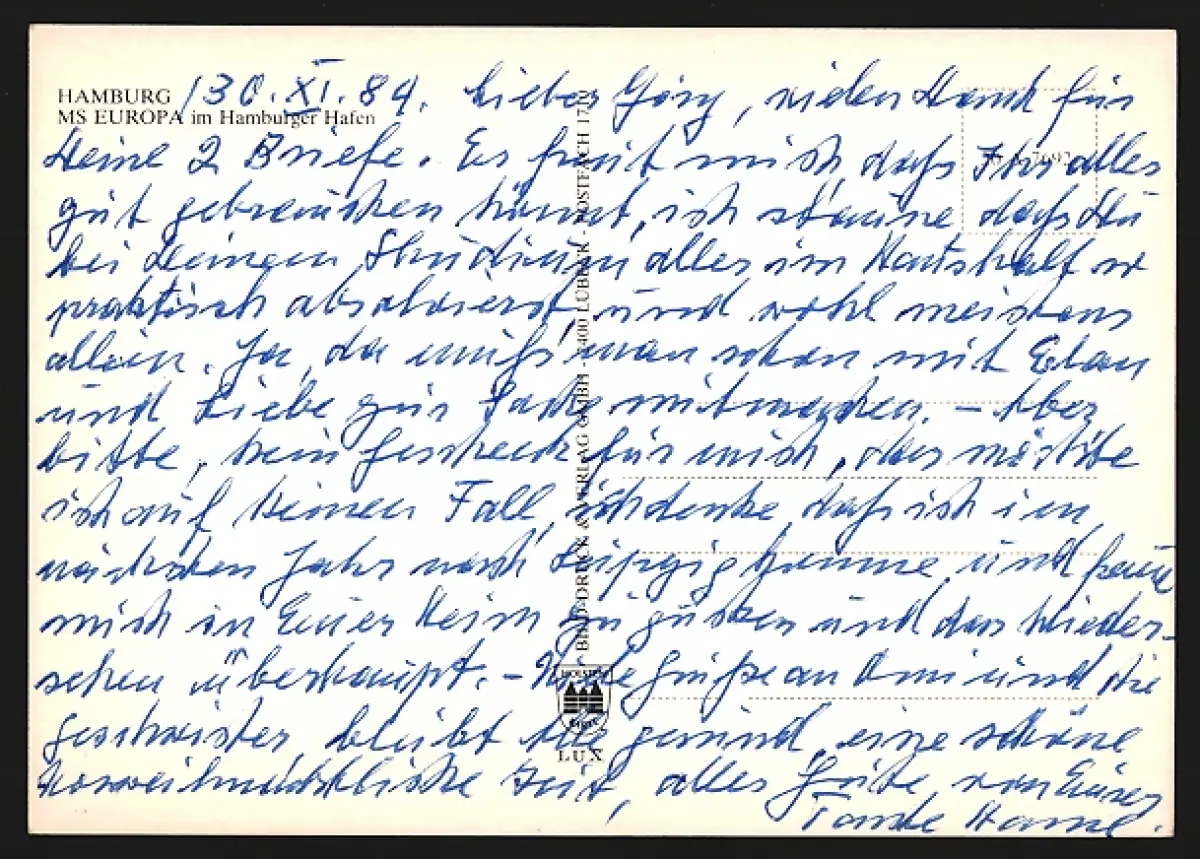 HAMBURG
MS EUROPA im Hamburger Hafen
30. XI. 89. Lieber Görg, vielen Dank für
Deine 2 Briefe. Es freut mich, daß Ihr alles
gut gebrauchen könnt, ich staune daß Du
bei Deinem Studium alles im Haushalt so
praktisch absolvierst, und wohl meistens
allein. Ja, da muß man schon mit Elan
und Liebe zur Sache mitmachen. – Aber
bitte, kein Geschenk für mich, das möchte
ich auf keinen Fall, ich denke, daß ich im
nächsten Jahr nach Leipzig komme und freue
mich in Euer Heim zu gucken und das Wieder-
sehen überhaupt. – Viele Grüße an Omi und die
Geschwister, bleibt alle gesund, eine schöne
Vorweihnachtliche Zeit, alles Gute, von Eurer
Tante Hanne.
BILD-DRUCK & VERLAG GMBH - 2400 LÜBECK - POSTFACH 17
LUX